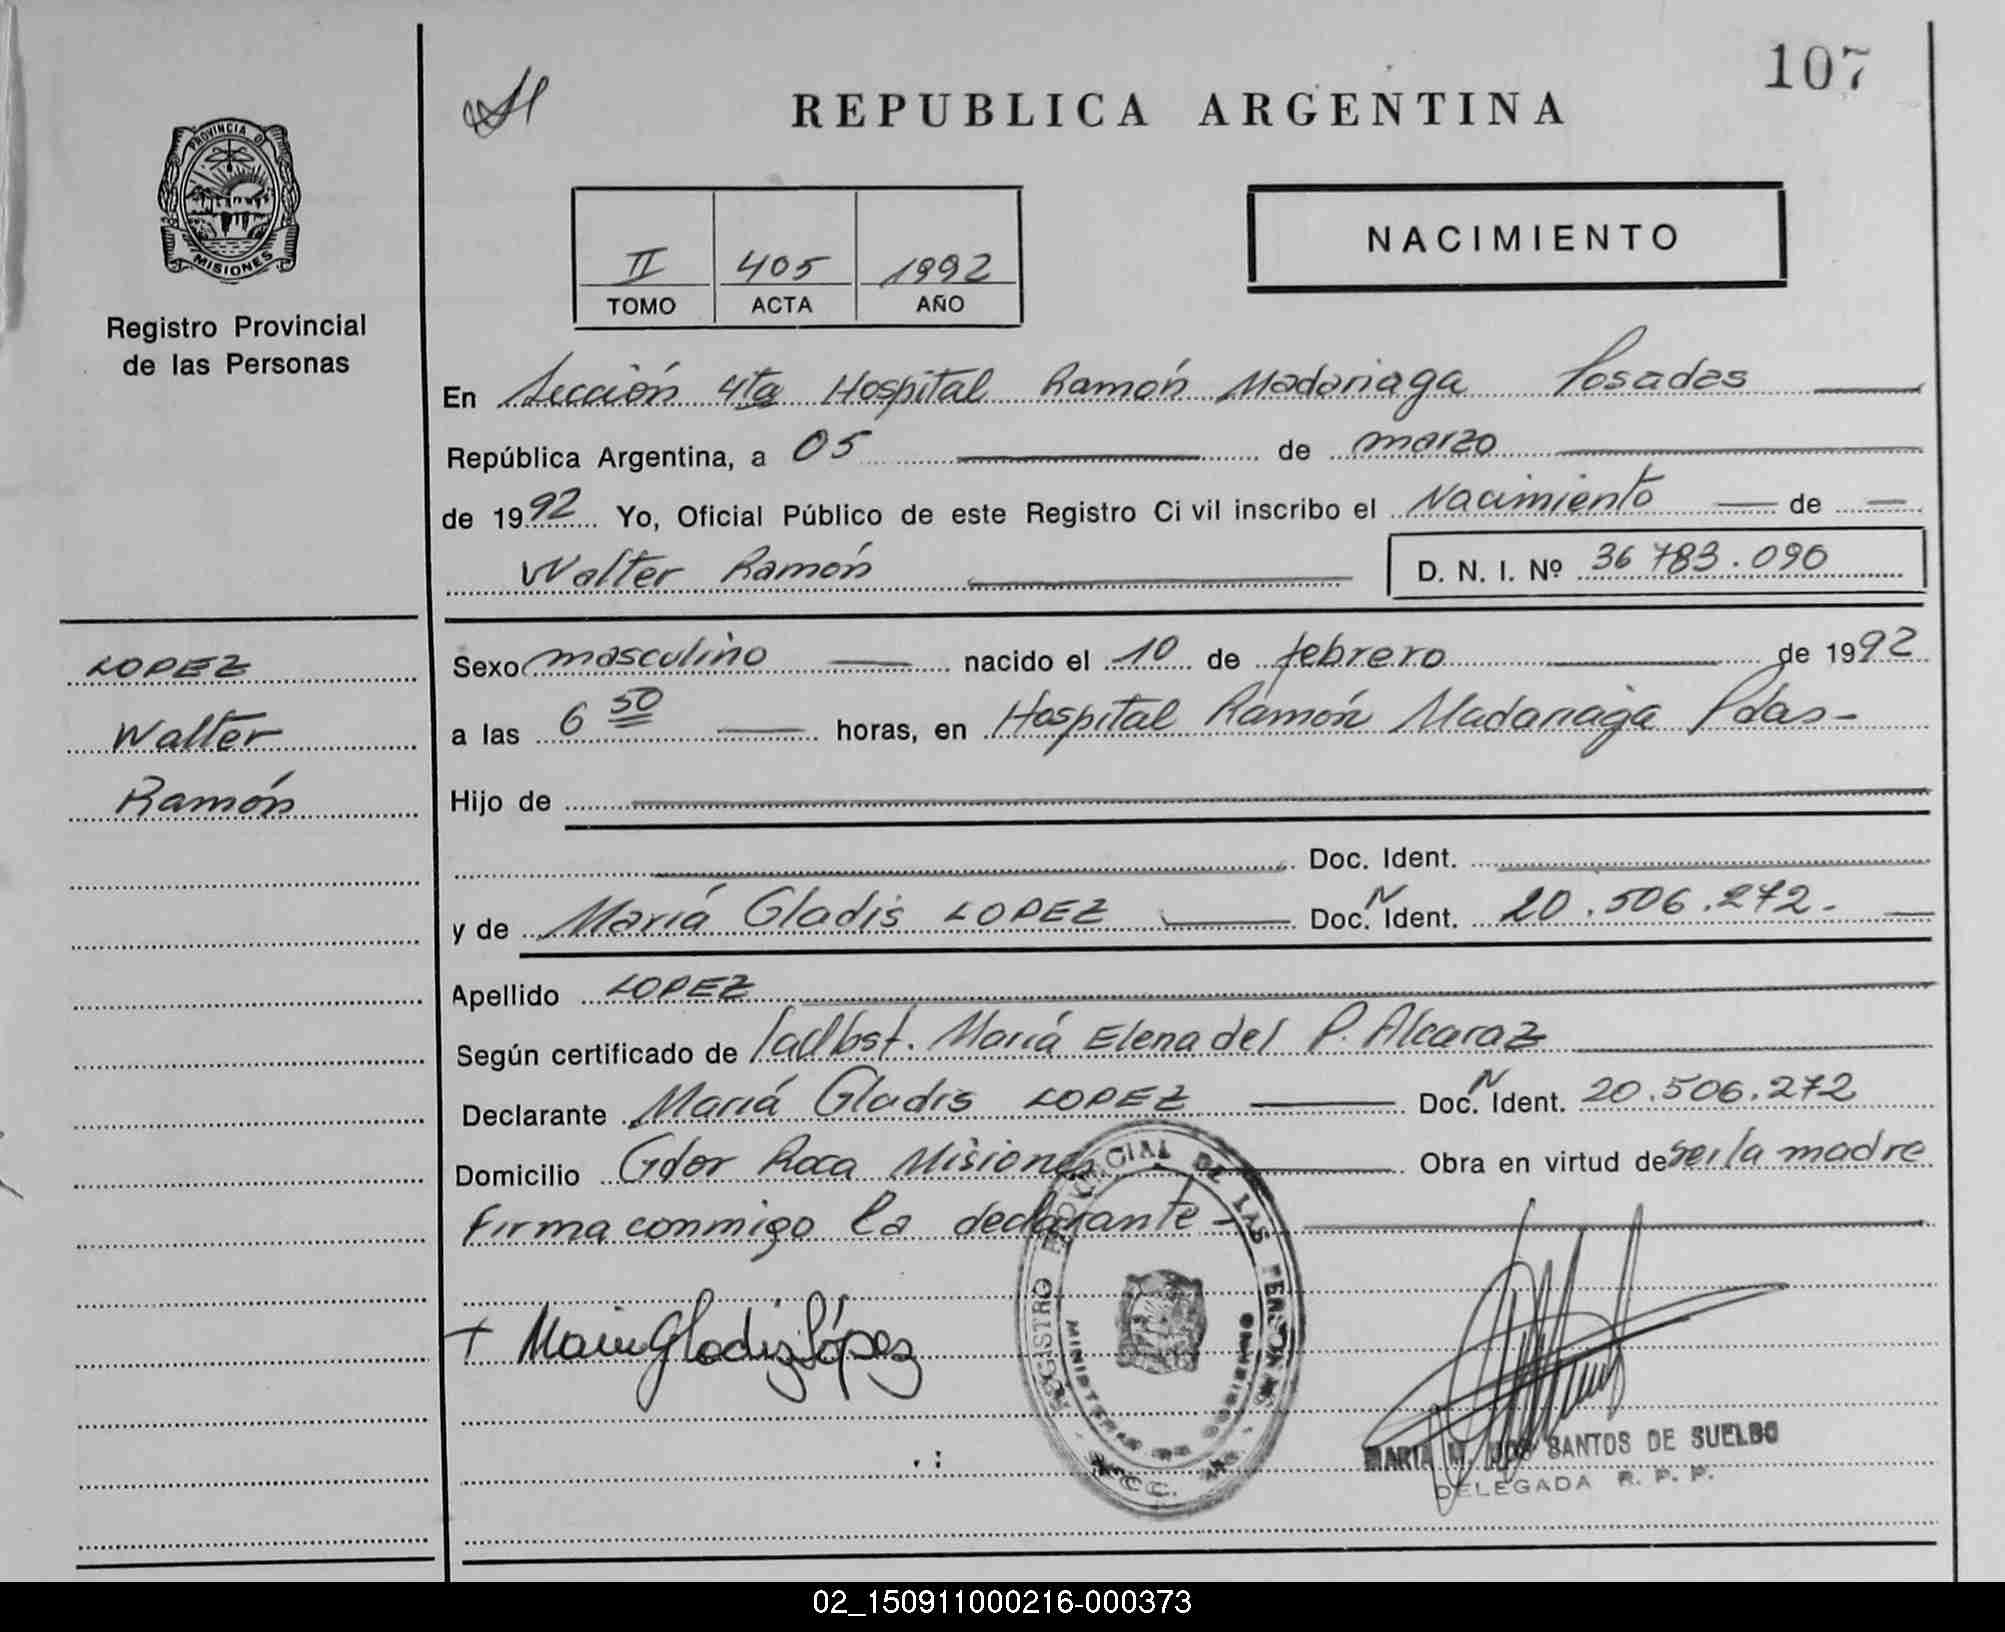 107
REPUBLICA ARGENTINA
PROVINCIA DE
MISIONES
Registro Provincial
de las Personas
II 405 1992
TOMO ACTA AÑO
NACIMIENTO
En Sección 4ta Hospital Ramón Madariaga Posadas
República Argentina, a 05 de marzo
de 1992 Yo, Oficial Público de este Registro Civil inscribo el Nacimiento de
Walter Ramón D. N. I. Nº 36 783.090
LOPEZ
Walter
Ramón
Sexo masculino nacido el 10 de febrero de 1992
a las 6 50 horas, en Hospital Ramón Madariaga Pdas-
Hijo de
Doc. Ident.
y de María Gladis LOPEZ Doc. N Ident. 20.506.272.-
Apellido LOPEZ
Según certificado de María Elena del P. Alcaraz
Declarante María Gladis LOPEZ Doc. N Ident. 20.506.272
Domicilio Gdor Roca Misiones Obra en virtud de ser la madre
Firma conmigo la declarante-
+ Maria Gladiz López
REGISTRO PROVINCIAL DE LAS PERSONAS
MARIA M. DOS SANTOS DE SUELDO
DELEGADA R. P. P.
02_150911000216-000373